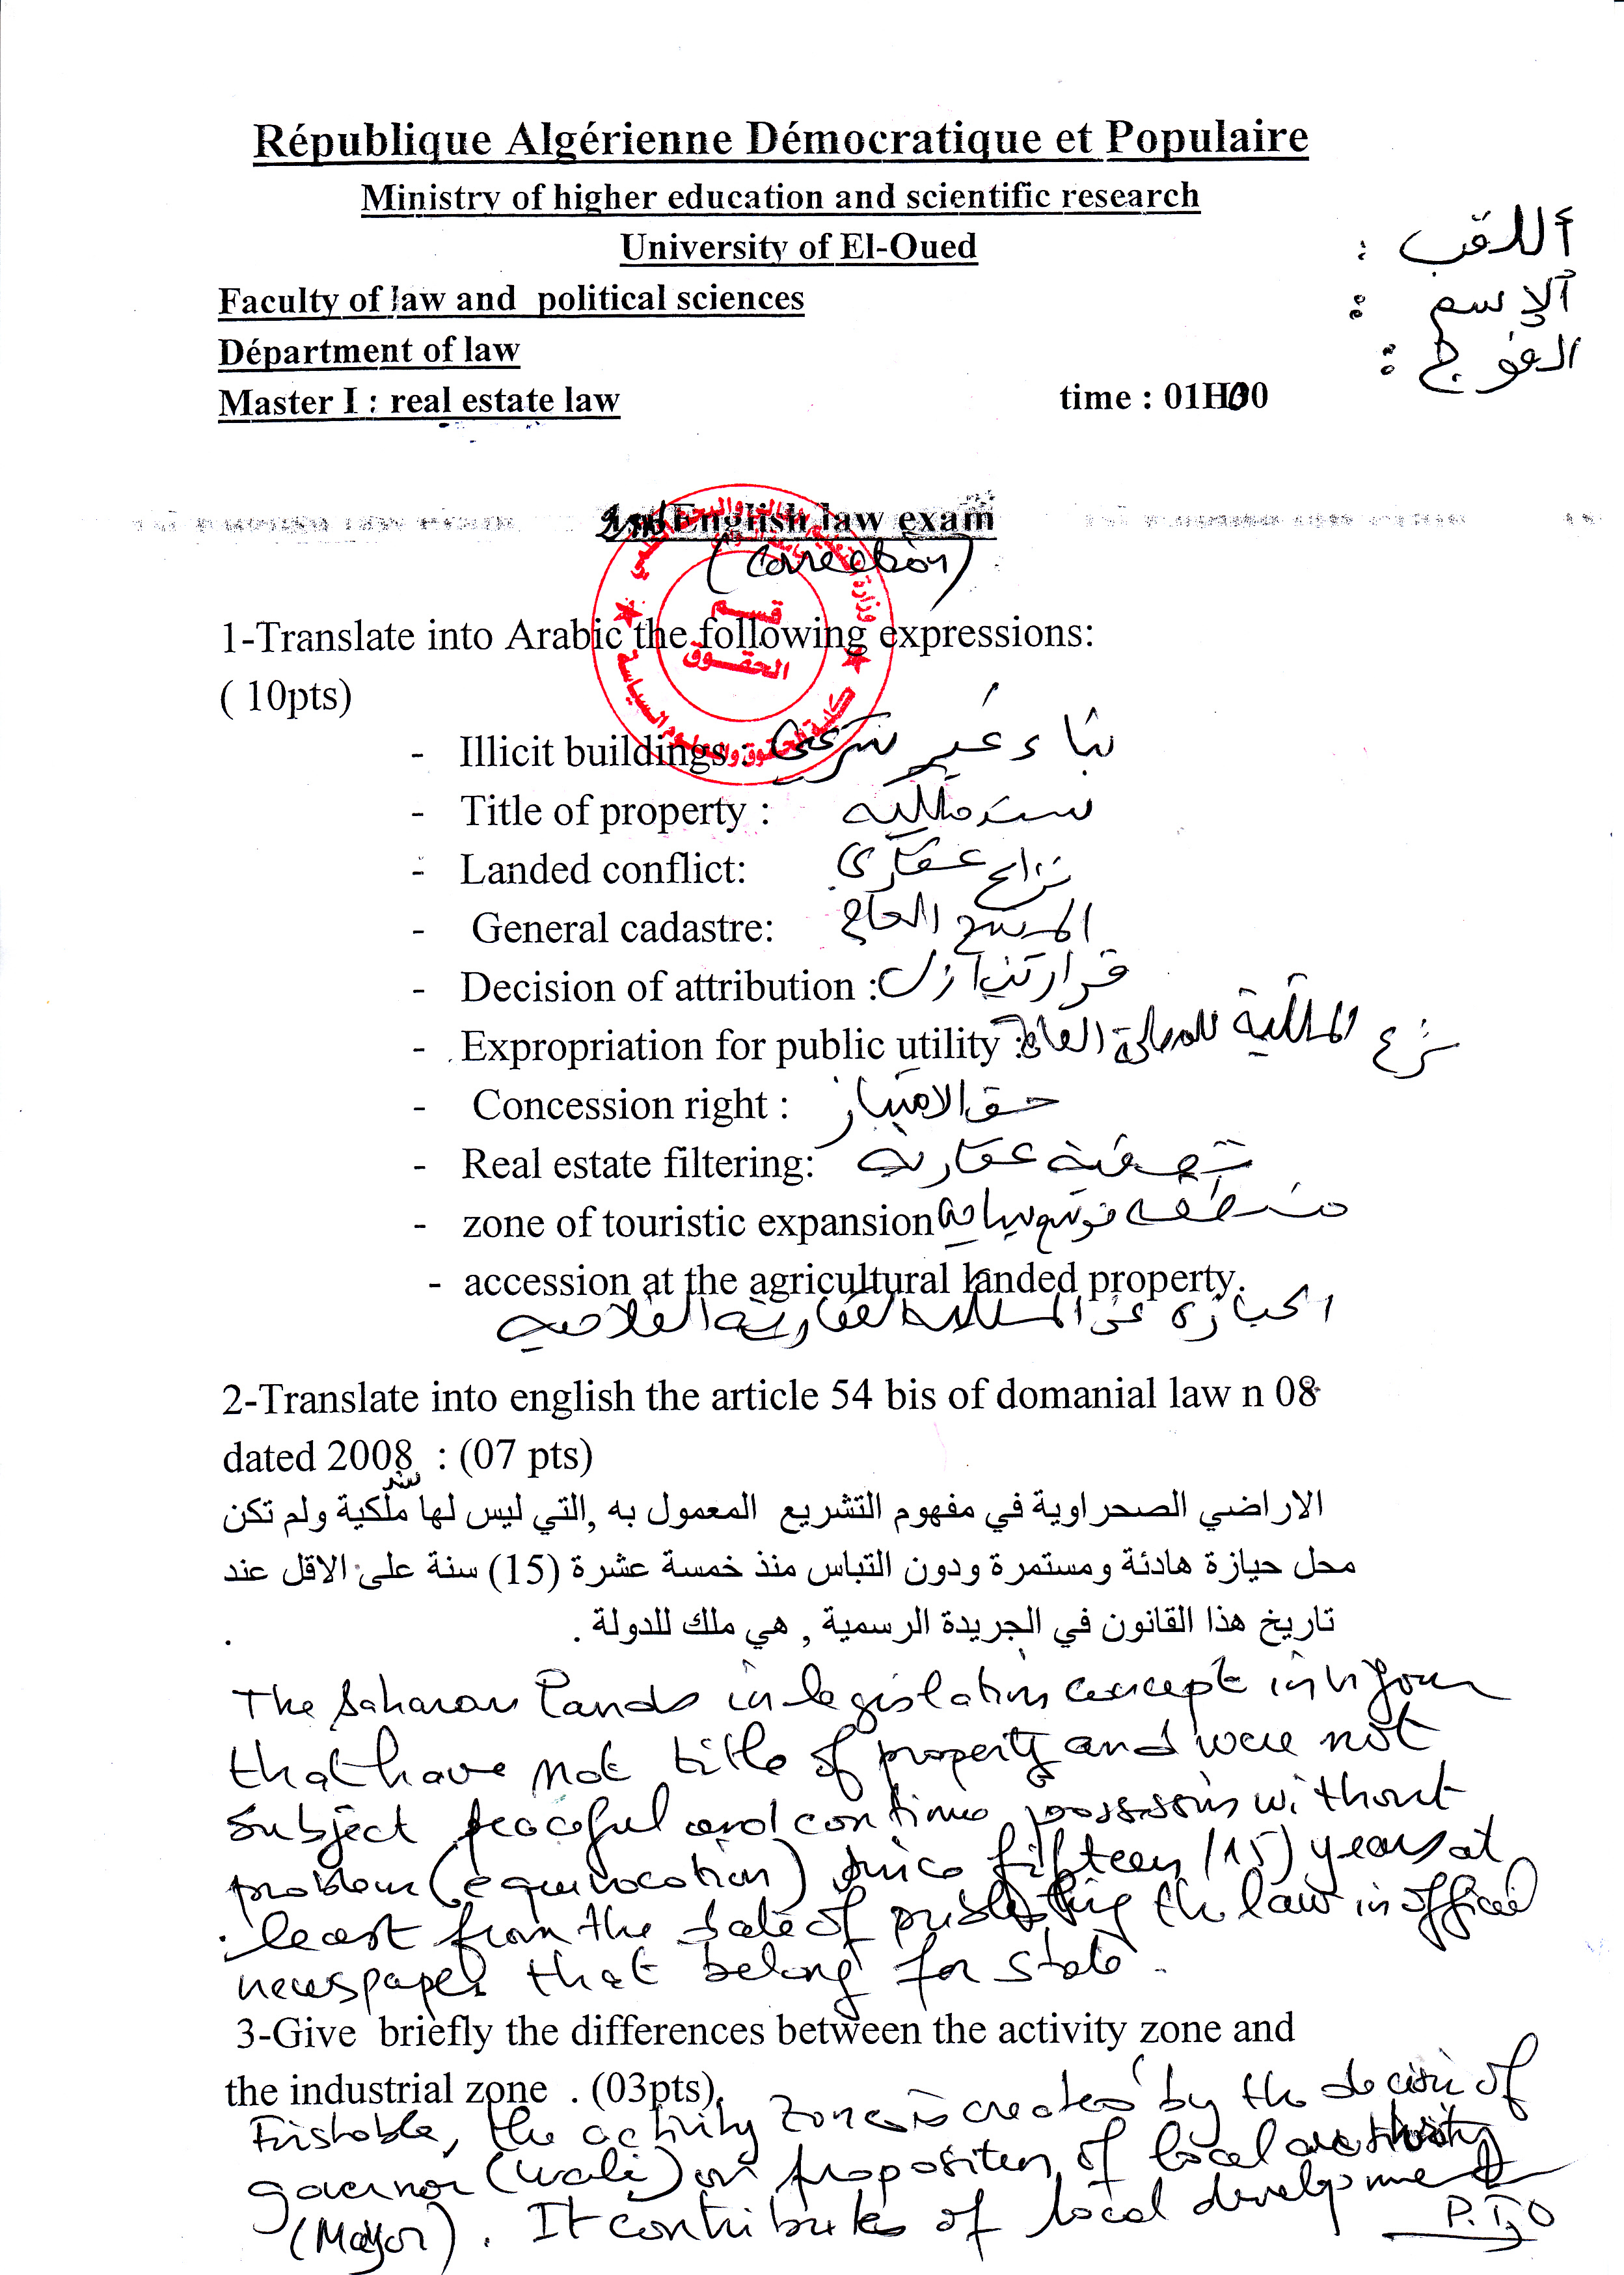 République Algérienne Démocratique et Populaire
Ministry of higher education and scientific research
University of El-Oued
أللقب :
Faculty of law and political sciences
ألإسم :
Départment of law
الفوج :
Master I : real estate law
time : 01H00
2nd English law exam
(correction)
قسم
الحقوق
1-Translate into Arabic the following expressions:
( 10pts)
- Illicit buildings : بناء غير شرعي
- Title of property : سند ملكية
- Landed conflict: نزاع عقاري
- General cadastre: المسح العام
- Decision of attribution : قرار تنازل
- Expropriation for public utility : نزع الملكية للمصلحة العامة
- Concession right : حق الامتياز
- Real estate filtering: تصفية عقارية
- zone of touristic expansion منطقة توسع سياحية
- accession at the agricultural landed property.
الحيازة في الملكية العقارية الفلاحية
2-Translate into english the article 54 bis of domanial law n 08
dated 2008 : (07 pts)
سند
الاراضي الصحراوية في مفهوم التشريع المعمول به ,التي ليس لها ملكية ولم تكن
محل حيازة هادئة ومستمرة ودون التباس منذ خمسة عشرة (15) سنة على الاقل عند
تاريخ هذا القانون في الجريدة الرسمية , هي ملك للدولة .
The Saharan lands in legislation concept in vigour
that have not title of property and were not
subject peaceful and continus possession without
problem (equivocation) since fifteen (15) years at
least from the date of publishing the law in official
newspaper that belong for state.
3-Give briefly the differences between the activity zone and
the industrial zone . (03pts).
the activity zone is created by the decision of
governor (wali) on proposition of local
(Mayor). It contributes of local development
P.T.O